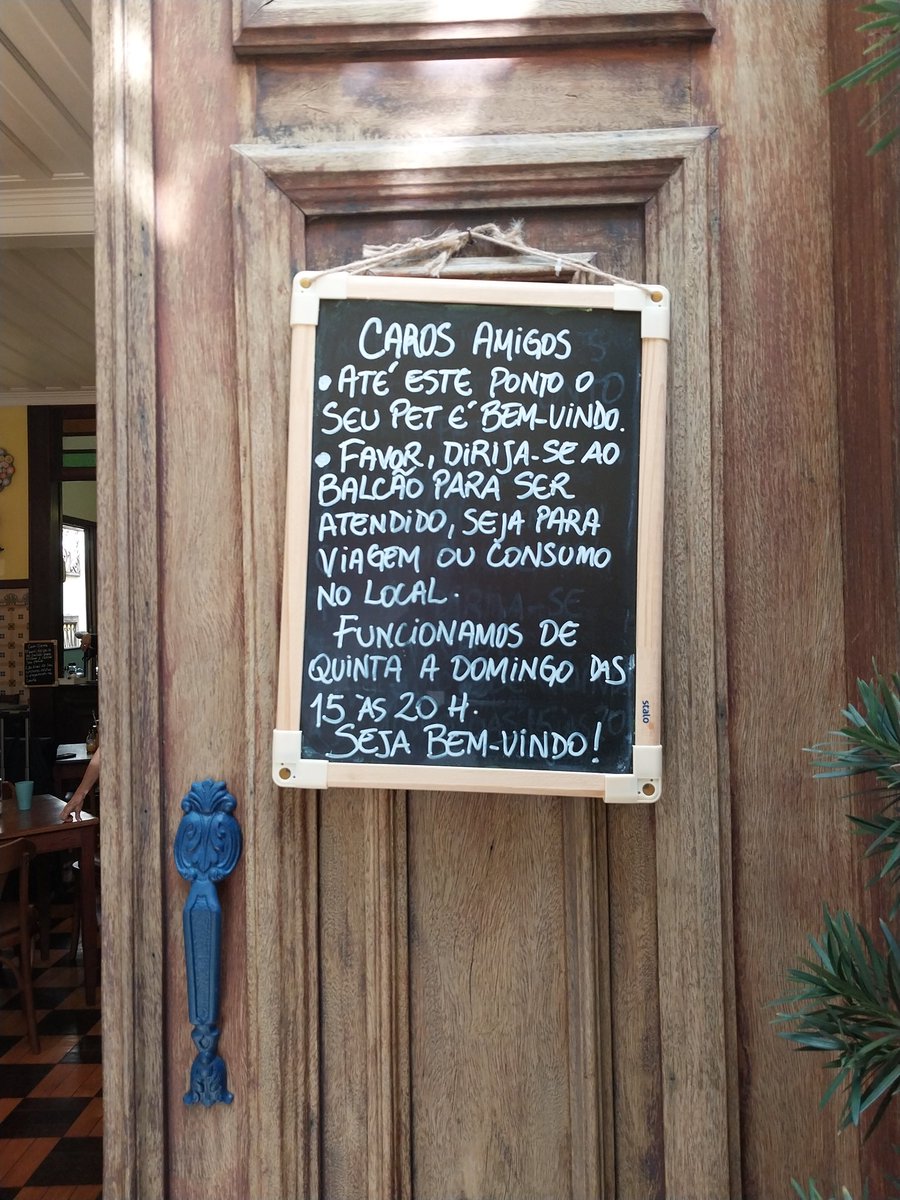 CAROS AMIGOS
• ATÉ ESTE PONTO O
SEU PET É BEM-VINDO.
• FAVOR, DIRIJA-SE AO
BALCÃO PARA SER
ATENDIDO, SEJA PARA
VIAGEM OU CONSUMO
NO LOCAL.
FUNCIONAMOS DE
QUINTA A DOMINGO DAS
15 ÀS 20 H.
SEJA BEM-VINDO!
stalo